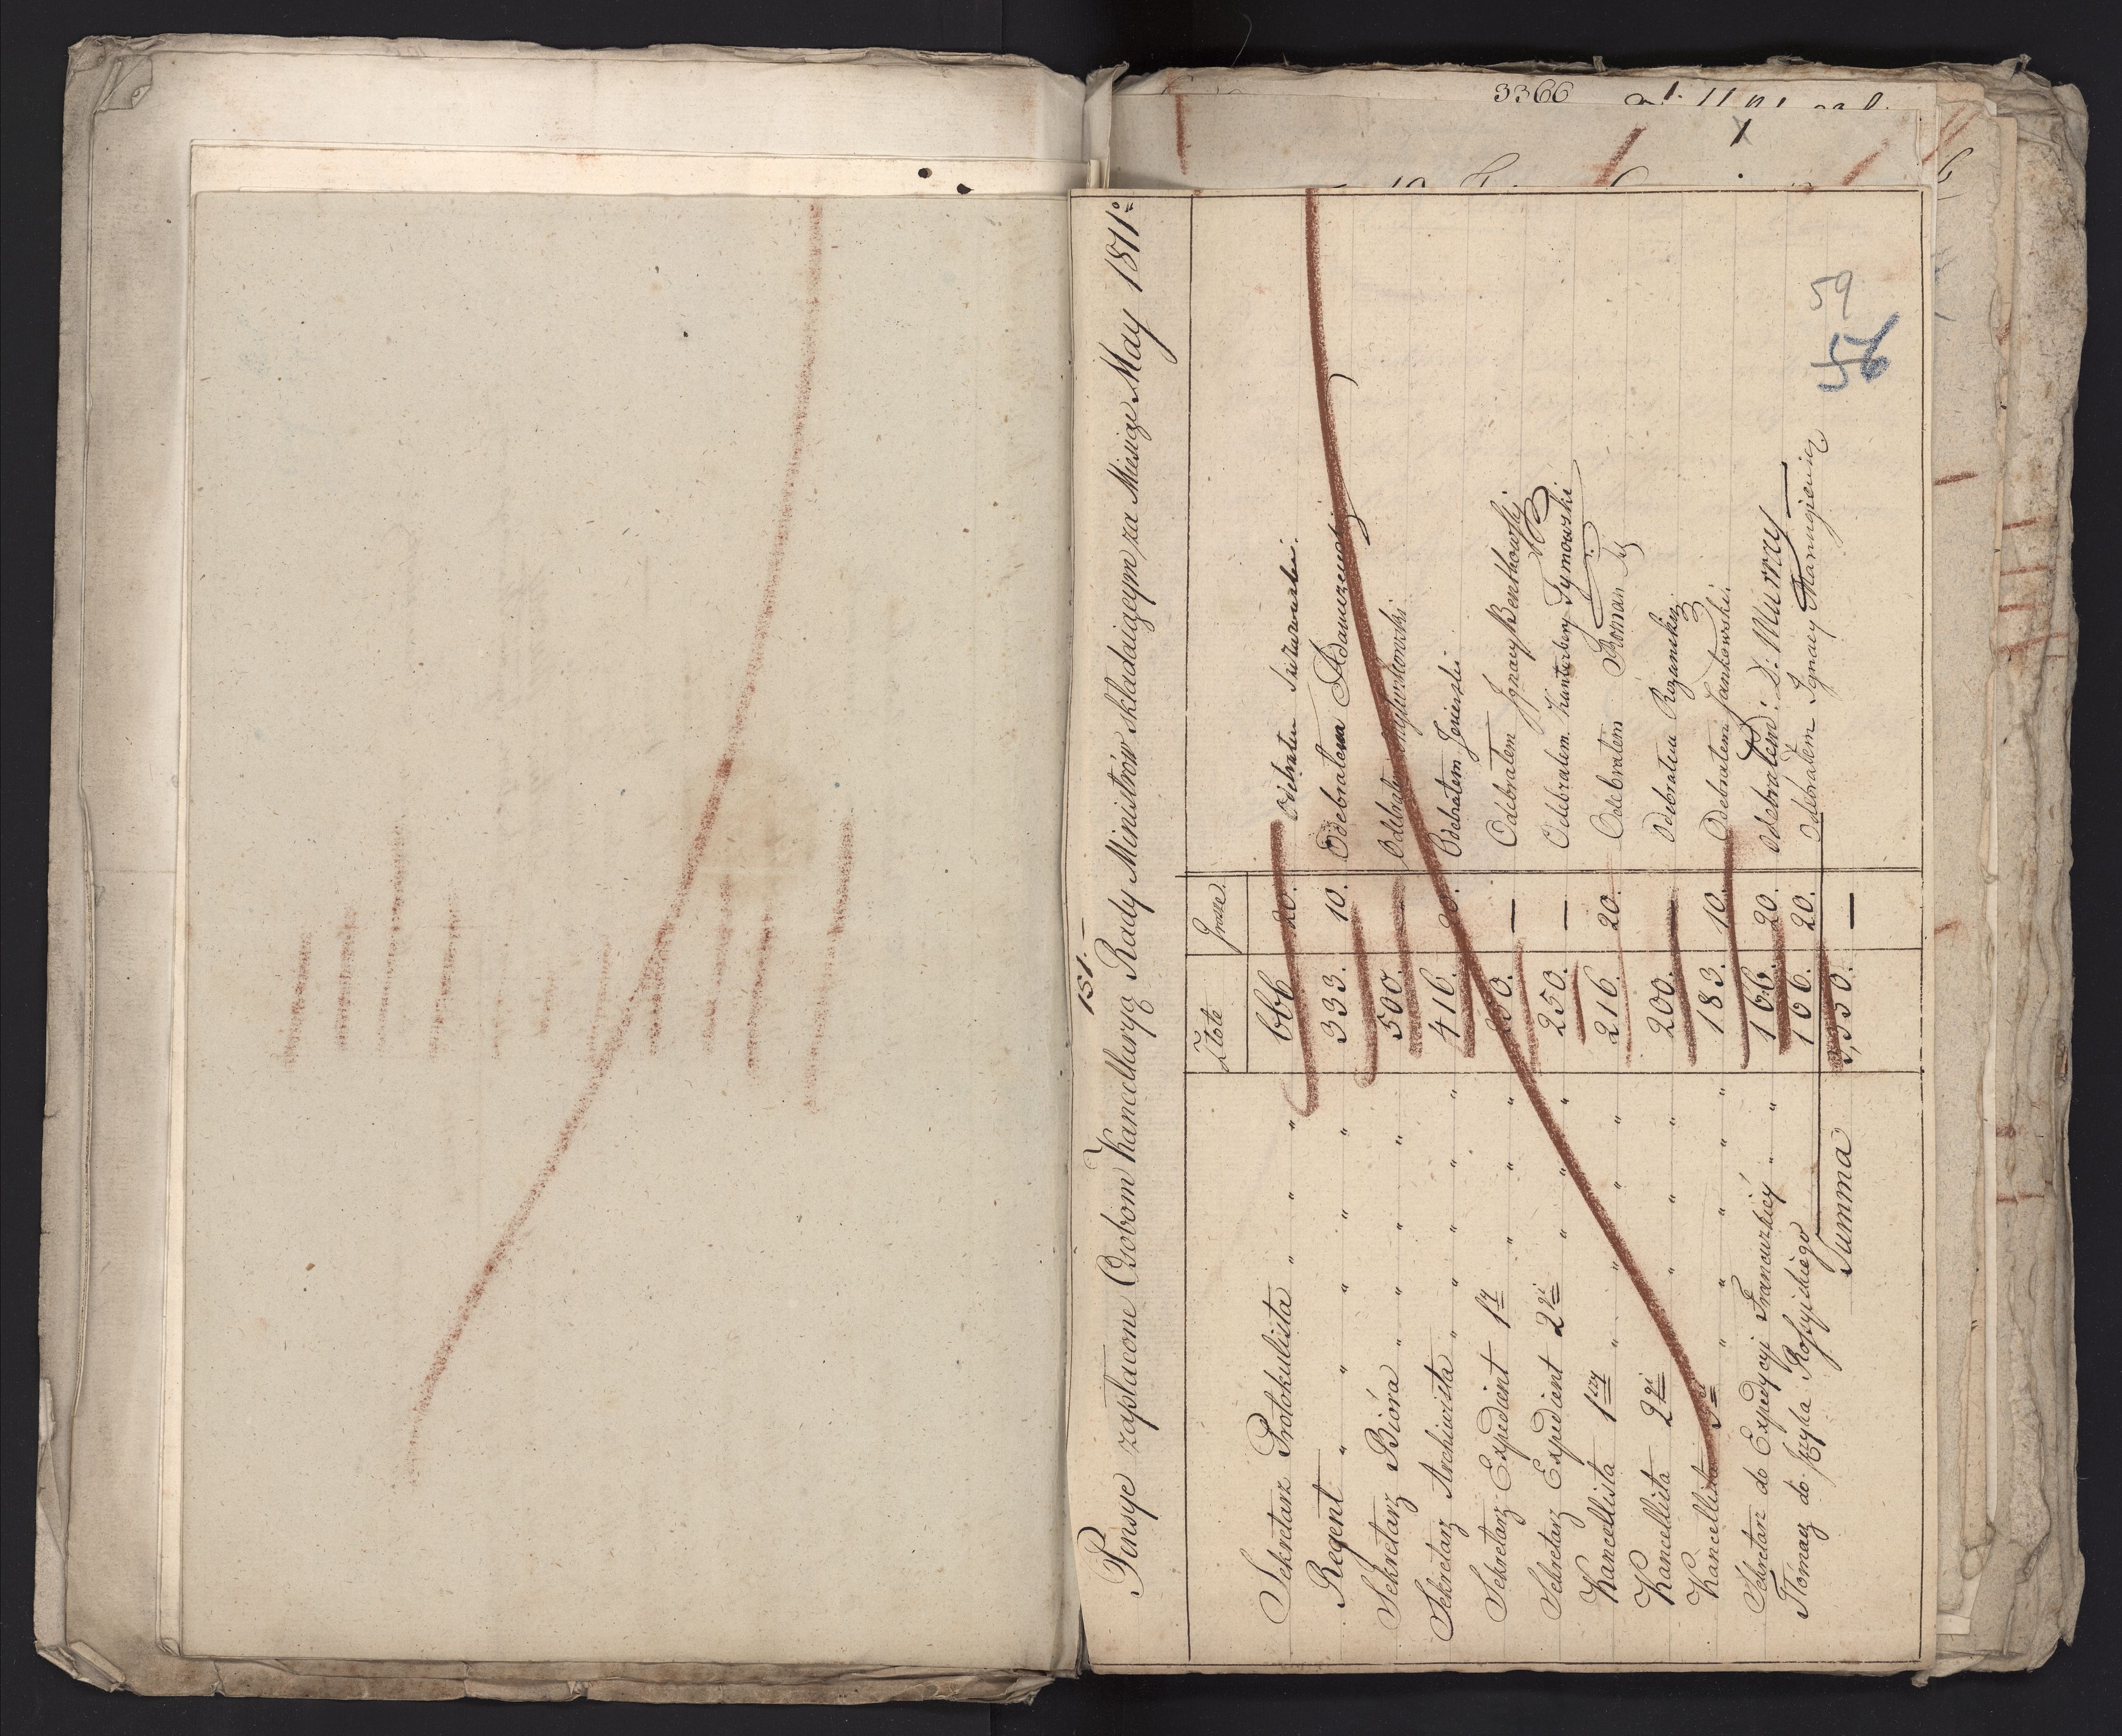 3366
151.
Pensye zapłacone Osobom Kancellaryą Rady Ministrów składaiącym za Miesiąc May 1811º
Złote Grosze
Sekretarz Protokulista " " " 666. 20. Odebrałem
Regent " " " " " 333. 10. Odebrałem
Sekretarz Bióra " " " " 500. — Odebrałem
Sekretarz Archiwista " " " " " 416. 20. Odebrałem Jezierski
Sekretarz Expedient 1y " " " 250. — Odebrałem Ignacy Benthowski
Sekretarz Expedient 2gi " " " 250. — Odebrałem Kunterberg Tymowski
Kancellista 1szy " " " " 216. 20. Odebrałem Roman
Kancellista 2gi " " " " 200. — Odebrałem Rozanski
Kancellista 3ci " " " " " 183. 10. Odebrałem Jankowski.
Sekretarz do Expedycyi Francuzkiey " " 166. 20. Odebrałem: D: Murray
Tłómacz do Języka Rossyiskiego 166. 20. Odebrałem Ignacy
Summa 3,350. —
59
56